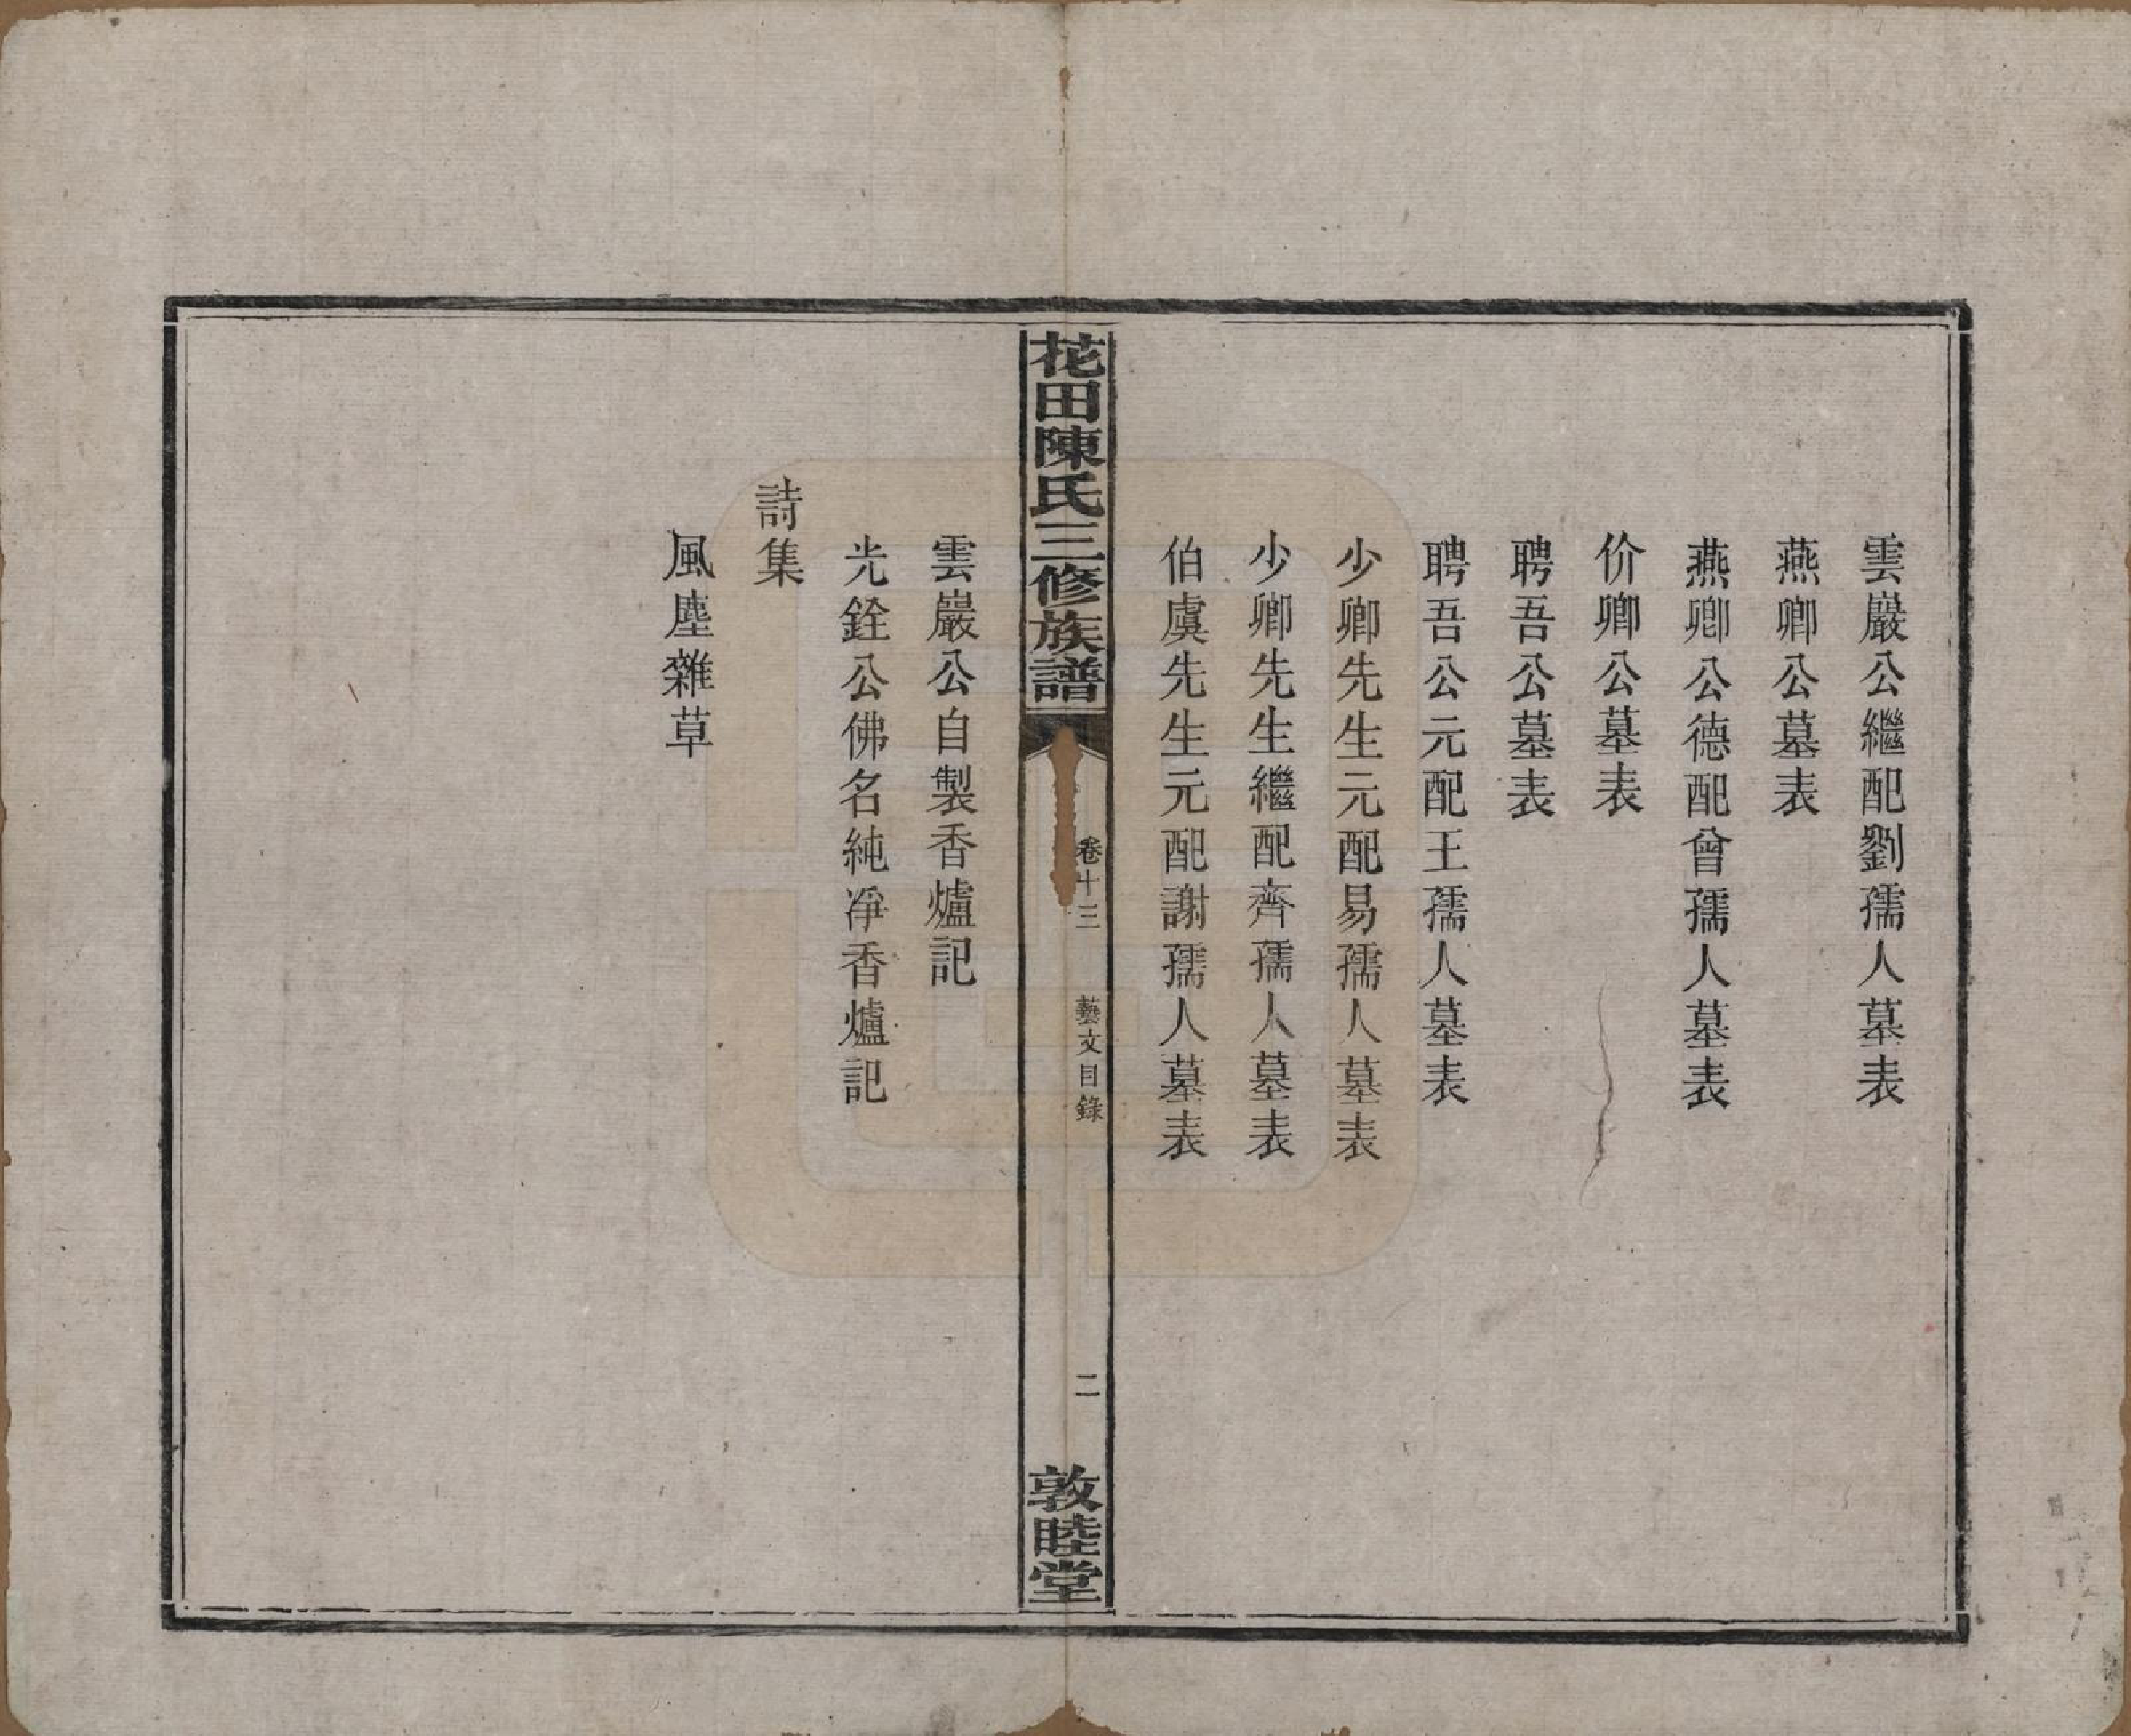 雲巖公繼配劉孺人墓表
燕卿公墓表
燕卿公德配曾孺人墓表
价卿公墓表
聘吾公墓表
聘吾公元配王孺人墓表
少卿先生元配易孺人墓表
少卿先生繼配齊孺人墓表
伯虞先生元配謝孺人墓表
花田陳氏三修族譜
卷十三
藝文目錄
二
敦睦堂
雲巖公自製香爐記
光銓公佛名純淨香爐記
詩集
風塵雜草